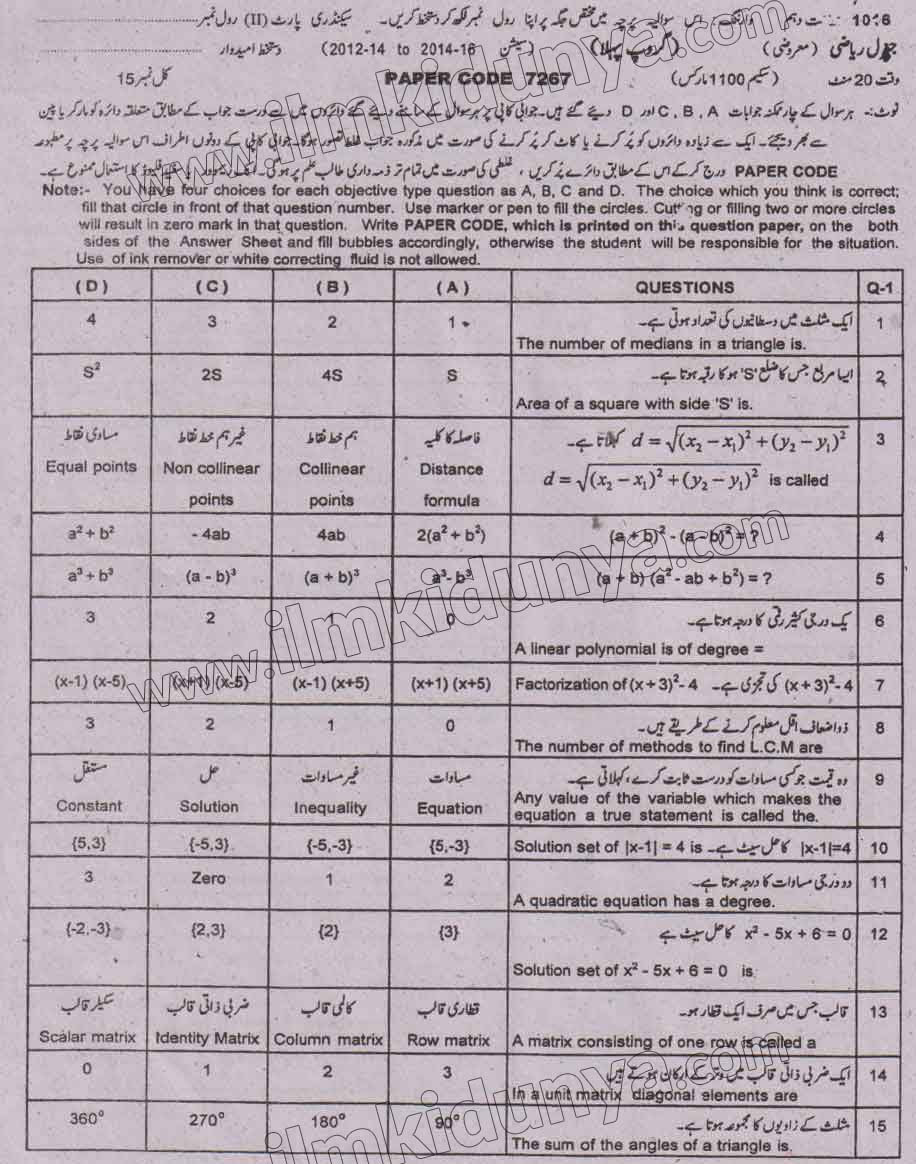 1016 وارننگ:۔ اس سوالیہ پرچہ میں مختص جگہ پر اپنا رول نمبر لکھ کر دستخط کریں۔ سیکنڈری پارٹ (II) رول نمبر
جنرل ریاضی (معروضی) (گروپ پہلا) (سیشن 2012-14 to 2014-16) دستخط امیدوار
وقت 20 منٹ (سکیم 1100 مارکس) PAPER CODE 7267 کل نمبر 15
نوٹ:۔ ہر سوال کے چار ممکنہ جوابات A ، B ، C اور D دیئے گئے ہیں۔ جوابی کاپی پر ہر سوال کے سامنے دیئے گئے دائروں میں سے درست جواب کے مطابق متعلقہ دائرہ کو مارکر یا پین
سے بھر دیجئے۔ ایک سے زیادہ دائروں کو پُر کرنے یا کاٹ کر پُر کرنے کی صورت میں مذکورہ جواب غلط تصور ہوگا۔ جوابی کاپی کے دونوں اطراف اس سوالیہ پرچہ پر مطبوعہ
PAPER CODE درج کر کے اس کے مطابق دائرے پُر کریں ، غلطی کی صورت میں تمام تر ذمہ داری طالب علم پر ہوگی۔ کا استعمال ممنوع ہے۔
Note:- You have four choices for each objective type question as A, B, C and D. The choice which you think is correct;
fill that circle in front of that question number. Use marker or pen to fill the circles. Cutting or filling two or more circles
will result in zero mark in that question. Write PAPER CODE, which is printed on this question paper, on the both
sides of the Answer Sheet and fill bubbles accordingly, otherwise the student will be responsible for the situation.
Use of ink remover or white correcting fluid is not allowed.
(D) (C) (B) (A) QUESTIONS Q-1
4 3 2 1 ایک مثلث میں وسطانیوں کی تعداد ہوتی ہے۔ 1
The number of medians in a triangle is.
S² 2S 4S S ایسا مربع جس کا ضلع 'S' ہو کا رقبہ ہوتا ہے۔ 2
Area of a square with side 'S' is.
مساوی نقاط غیر ہم خط نقاط ہم خط نقاط فاصلہ کا کلیہ d = √(x₂ − x₁)² + (y₂ − y₁)² کہلاتا ہے۔ 3
Equal points Non collinear Collinear Distance d = √(x₂ − x₁)² + (y₂ − y₁)² is called
points points formula
a² + b² - 4ab 4ab 2(a² + b²) (a + b)² - (a - b)² = ? 4
a³ + b³ (a - b)³ (a + b)³ a³- b³ (a + b) (a² - ab + b²) = ? 5
3 2 1 0 یک درجی کثیر رقمی کا درجہ ہوتا ہے۔ 6
A linear polynomial is of degree =
(x-1) (x-5) (x+1) (x-5) (x-1) (x+5) (x+1) (x+5) Factorization of (x + 3)²- 4 کی تجزی ہے۔ (x + 3)²- 4 7
3 2 1 0 ذواضعاف اقل معلوم کرنے کے طریقے ہیں۔ 8
The number of methods to find L.C.M are
مستقل حل غیر مساوات مساوات وہ قیمت جو کسی مساوات کو درست ثابت کرے، کہلاتی ہے۔ 9
Constant Solution Inequality Equation Any value of the variable which makes the
equation a true statement is called the.
{5,3} {-5,3} {-5,-3} {5,-3} Solution set of |x-1| = 4 is کا حل سیٹ ہے۔ |x-1|=4 10
3 Zero 1 2 دو درجی مساوات کا درجہ ہوتا ہے۔ 11
A quadratic equation has a degree.
{-2,-3} {2,3} {2} {3} x² - 5x + 6 = 0 کا حل سیٹ ہے 12
Solution set of x² - 5x + 6 = 0 is
سکیلر قالب ضربی ذاتی قالب کالمی قالب قطاری قالب قالب جس میں صرف ایک قطار ہو۔ 13
Scalar matrix Identity Matrix Column matrix Row matrix A matrix consisting of one row is called a
0 1 2 3 ایک ضربی ذاتی قالب میں وتر کے ارکان ہوتے ہیں 14
In a unit matrix diagonal elements are
360° 270° 180° 90° مثلث کے زاویوں کا مجموعہ ہوتا ہے۔ 15
The sum of the angles of a triangle is.
www.ilmkidunya.com
www.ilmkidunya.com
ilmkidunya.com